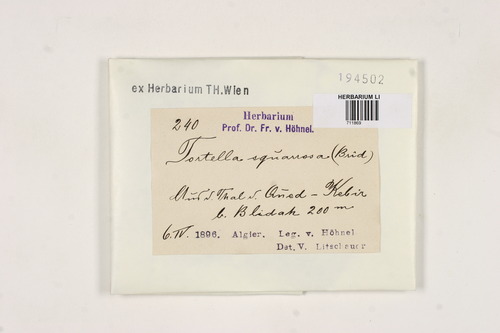 194502
ex Herbarium TH.Wien
HERBARIUM LI
711869
Herbarium
Prof. Dr. Fr. v. Höhnel.
240
Tortella squarrosa (Brid)
Aus d. Thal d. Oued - Kebir
b. Blidah 200 m
6. IV. 1896. Algier. Leg. v. Höhnel
Det. V. Litschauer